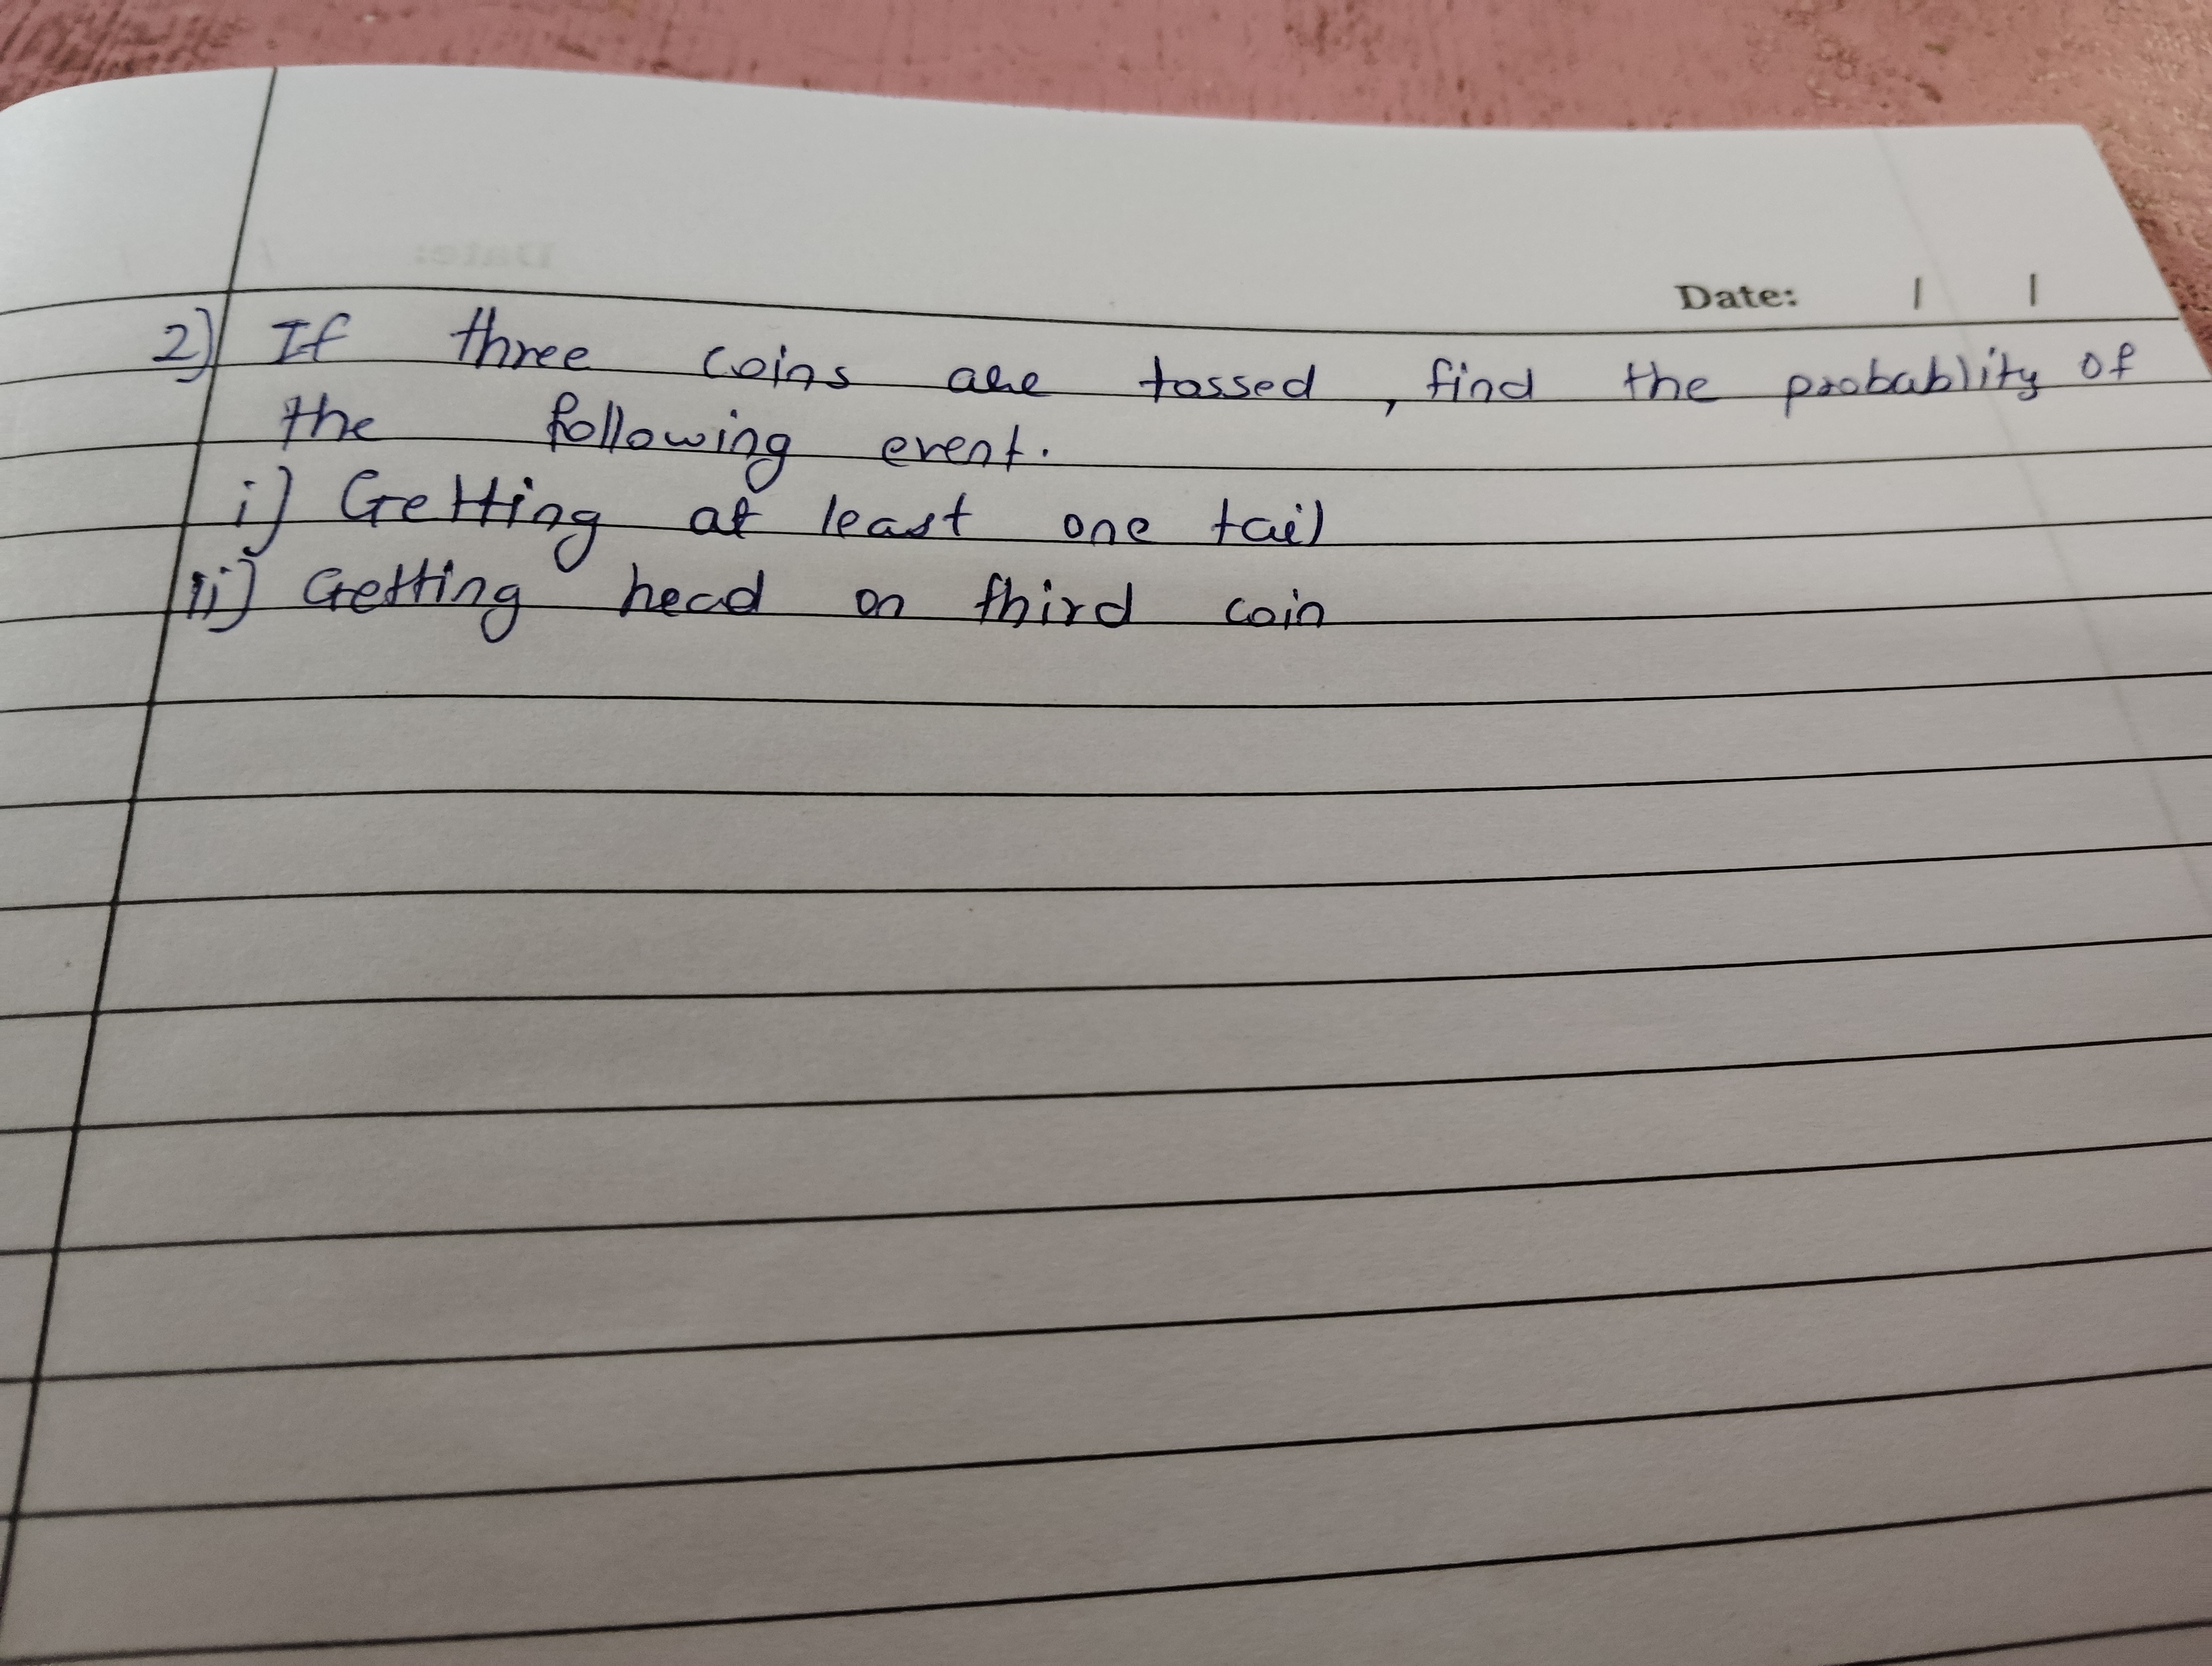 Date: / /
2) If three coins are tossed, find the probablity of
the following event.
i) Getting at least one tail
ii) Getting head on third coin